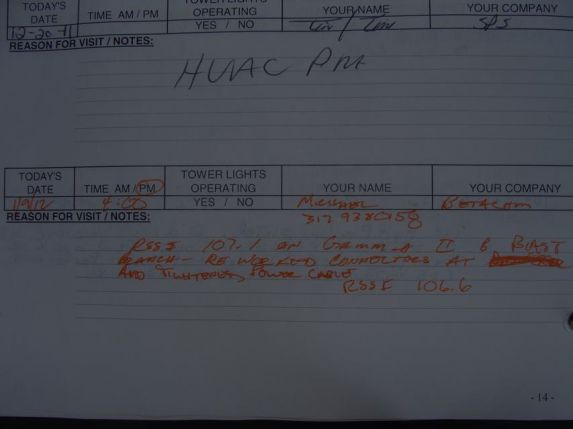 TODAY'S DATE TIME AM / PM TOWER LIGHTS OPERATING YES / NO YOUR NAME YOUR COMPANY
12-20-11 Tim / Tim SPS
REASON FOR VISIT / NOTES:
HVAC PM
TODAY'S DATE TIME AM / PM TOWER LIGHTS OPERATING YES / NO YOUR NAME YOUR COMPANY
1/9/12 4:00 Michael BETACOM
REASON FOR VISIT / NOTES: 317 938 0158
RSSI 107.1 ON GAMMA II B
BRANCH - RE WORKED CONNECTORS AT
AND TIGHTENED POWER CABLE
RSSI 106.6
- 14 -